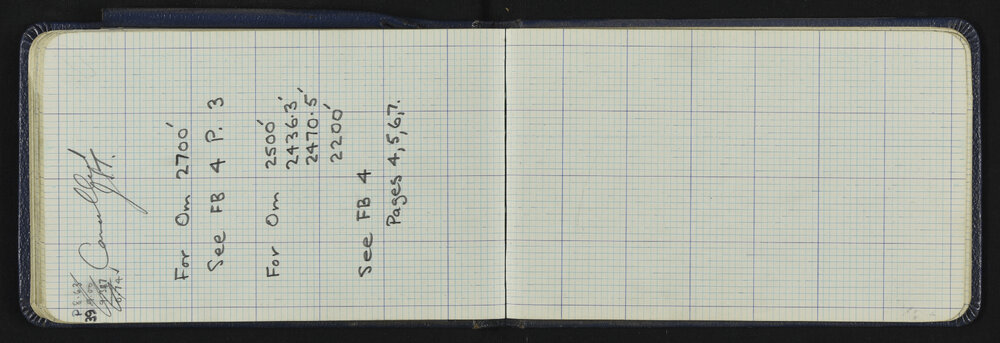 Cancelled
For Om 2700'
See FB 4 P. 3
For Om 2500'
2436.3'
2470.5'
2200'
See FB 4
Pages 4,5,6,7.
39